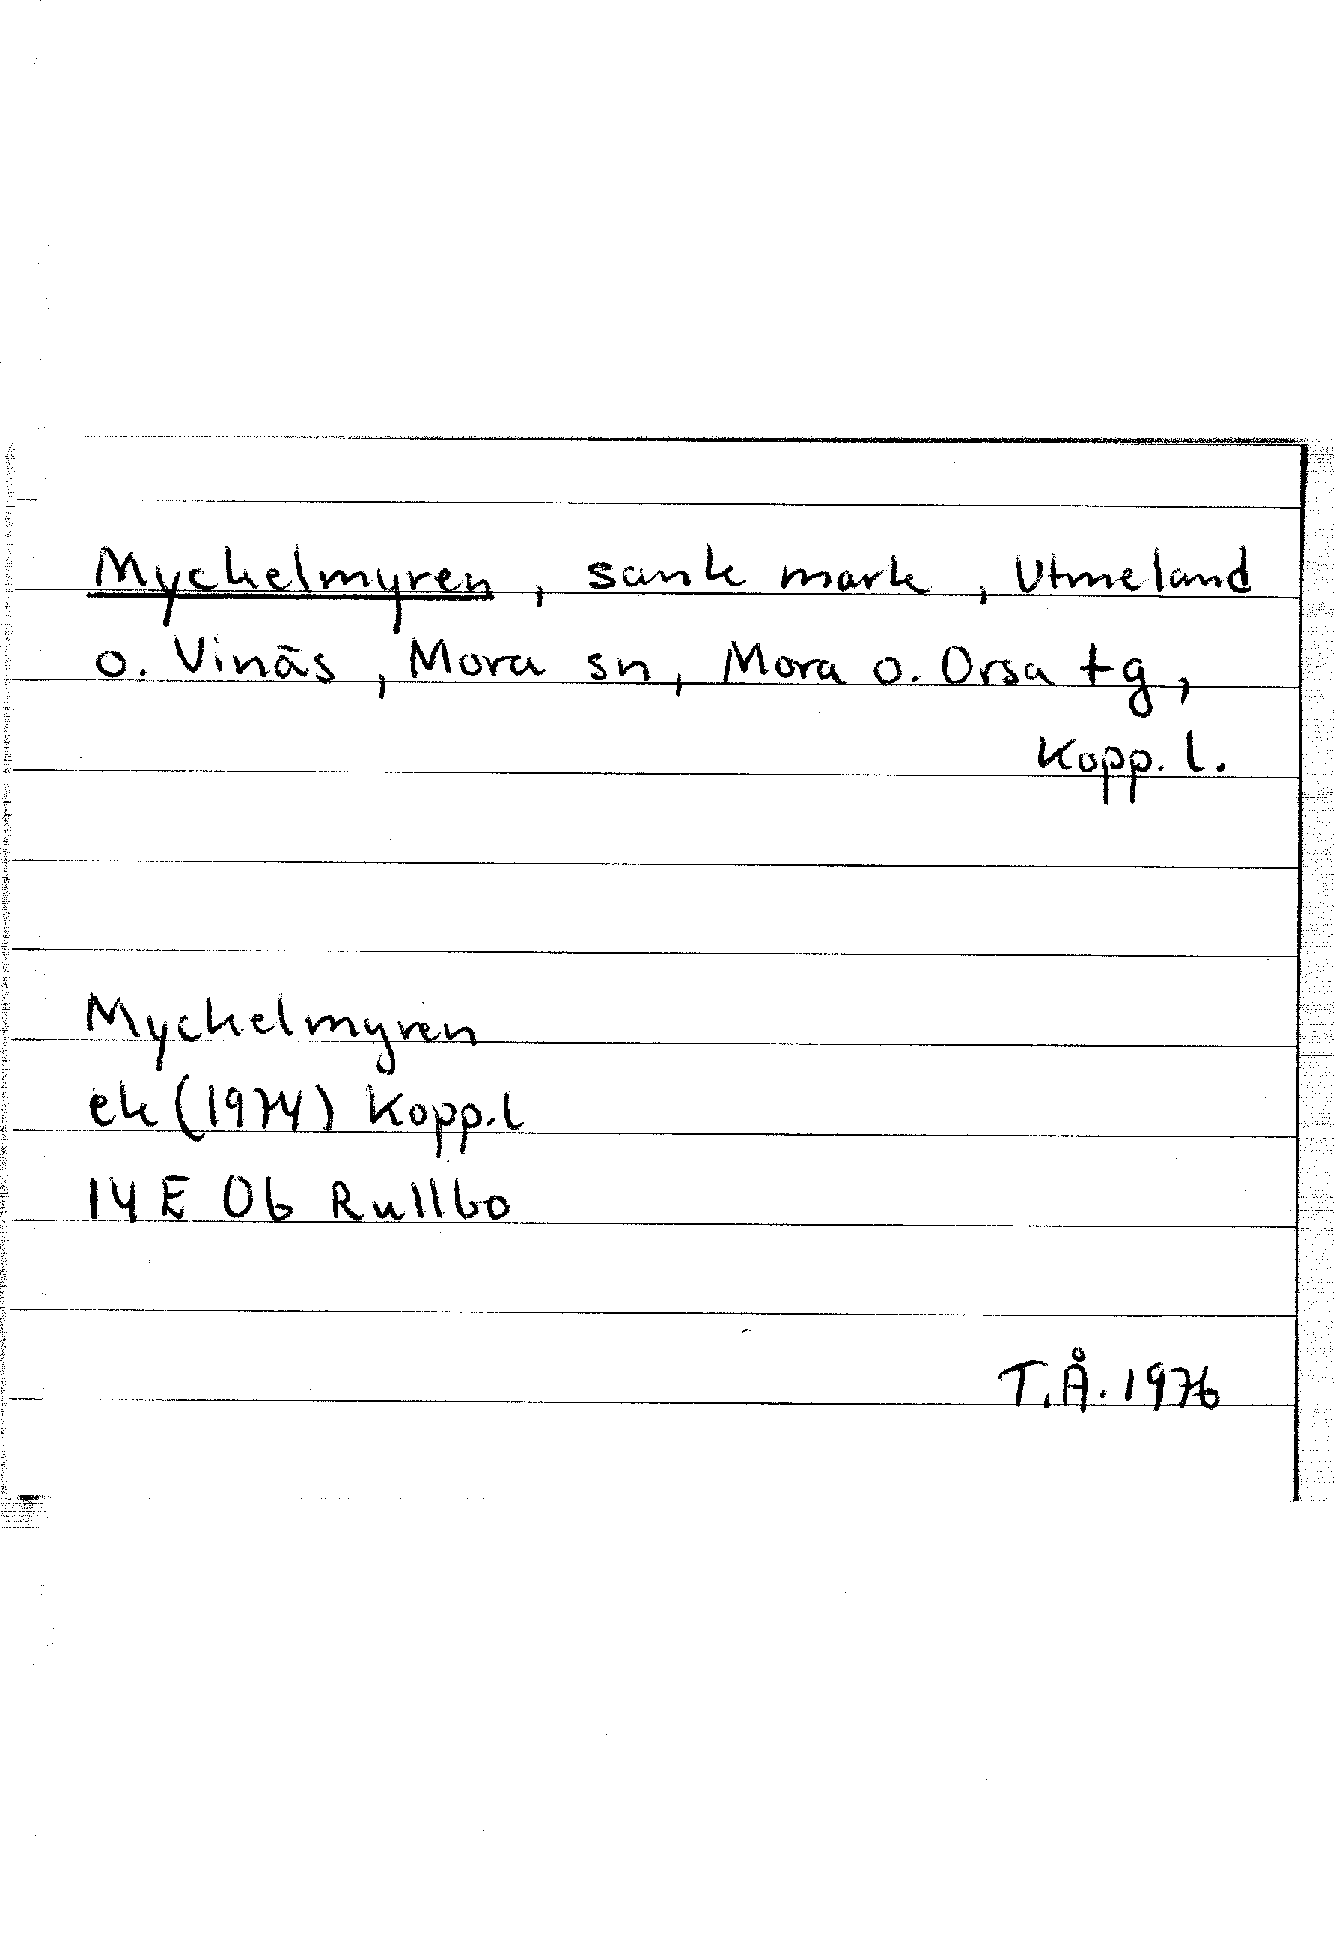 Myckelmyren, sank mark, Utmeland
o. Vinäs, Mora sn, Mora o. Orsa tg,
Kopp. l.
Myckelmyren
ek (1974) Kopp.l
14 E 0b Rullbo
T.Å. 1976